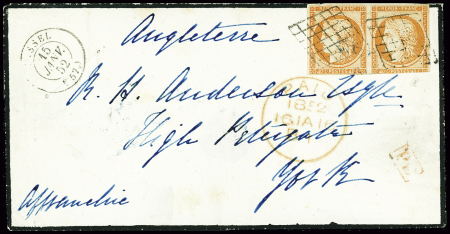 Angleterre
R. H. Anderson Esqre
High Petergate
York
Affranchie
SSEL
15
JANV.
52
(57)
REPUB. FRANC.
REPUB. FRANC.
PAID
1852
16 JA 16